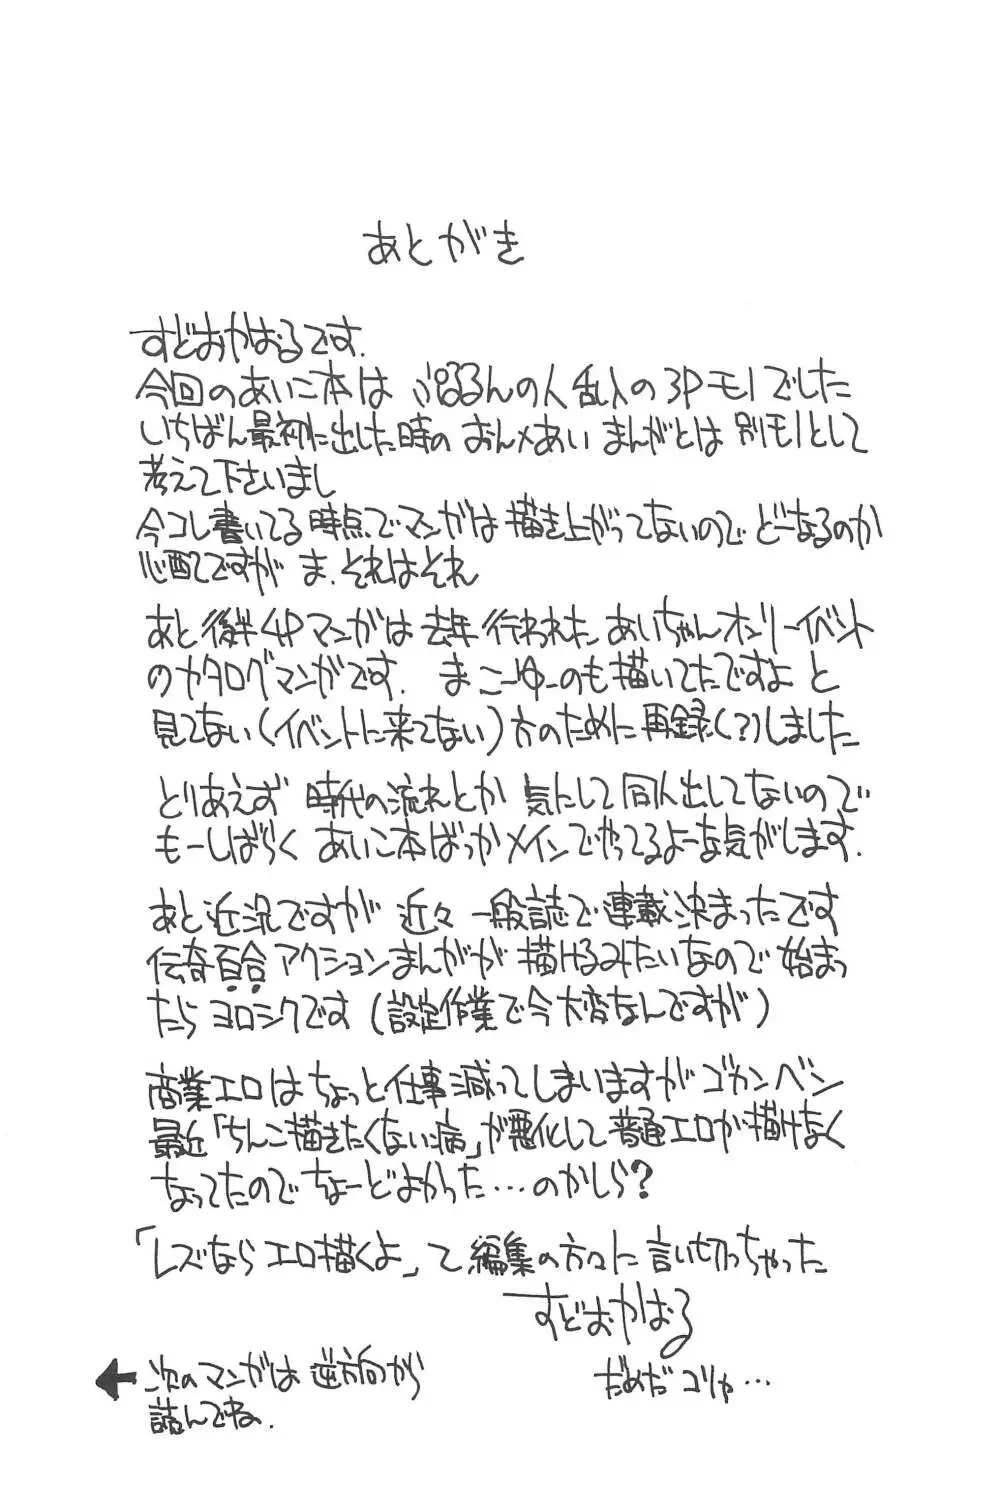 あとがき
すどおかおるです.
今回のあいこ本は ぷるるんの人乱入の3Pモノでした
いちばん最初に出した時の おんメあい まんがとは 別モノとして
考えて下さいまし
今コレ書いてる時点でマンガは描き上がってないので どーなるのか
心配ですが ま、それはそれ
あと後半4Pマンガは去年行われた あいちゃんオンリーイベント
のカタログマンガです. まこーゆーのも描いてたですよ と
見てない(イベントに来てない)方のために再録(?)しました
とりあえず 時代の流れとか 気にして同人出してないので
もーしばらく あいこ本ばっかメインでやってるよーな気がします.
あと近況ですが 近々 一般誌で連載決まったです
伝奇百合アクションまんがが 描けるみたいなので 始まっ
たら ヨロシクです (設定作業で今大変なんですが)
商業エロはちょっと仕事減ってしまいますがゴカンベン
最近「ちんこ描きたくない病」が悪化して普通エロが描けなく
なってたので ちょーどよかった…のかしら?
「レズなら エロ描くよ」って編集の方々に言い切っちゃった
すどおかおる
だめだ コリャ…
← 次のマンガは 逆方向から
読んでね.